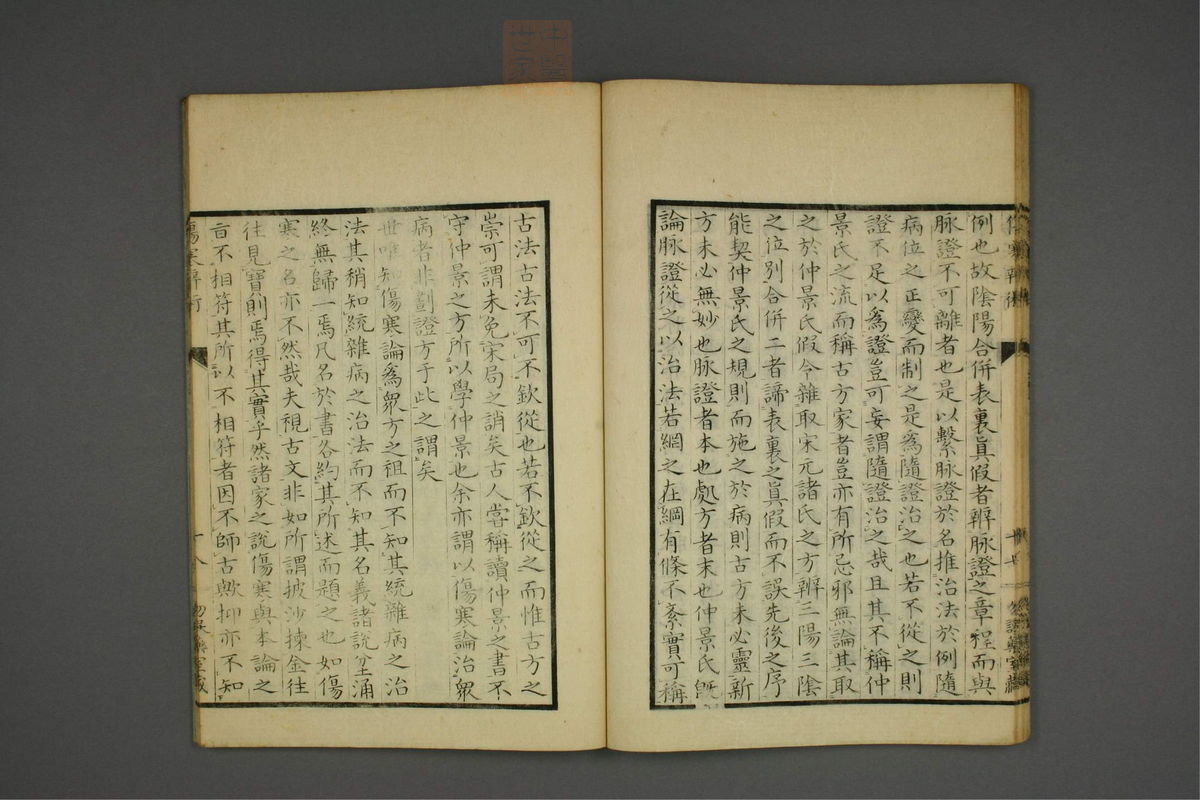 例也故陰陽合併表裏眞假者辨脉證之章程而與
脉證不可離者也是以繫脉證於名推治法於例隨
病位之正變而制之是為隨證治之也若不從之則
證不足以爲證豈可妄謂隨證治之哉且其不稱仲
景氏之流而稱古方家者豈亦有所忌邪無論其取
之於仲景氏假令雜取宋元諸氏之方辨三陽三陰
之位別合併二者諦表裏之眞假而不誤先後之序
能契仲景氏之規則而施之於病則古方未必靈新
方未必無妙也脉證者本也處方者末也仲景氏旣
論脉證從之以治法若網之在綱有條不紊實可稱
古法古法不可不欽從也若不欽從之而惟古方之
崇可謂未免宋局之誚矣古人嘗稱讀仲景之書不
守仲景之方所以學仲景也余亦謂以傷寒論治衆
病者非劃證方于此之謂矣
世唯知傷寒論爲衆方之祖而不知其統雜病之治
法其稍知統雜病之治法而不知其名義諸說坌涌
終無歸一焉凡名於書各約其所述而題之也如傷
寒之名亦不然哉夫視古文非如所謂披沙揀金往
往見寶則焉得其實乎然諸家之說傷寒與本論之
旨不相符其所以不相符者因不師古歟抑亦不知
傷寒辨術
十八